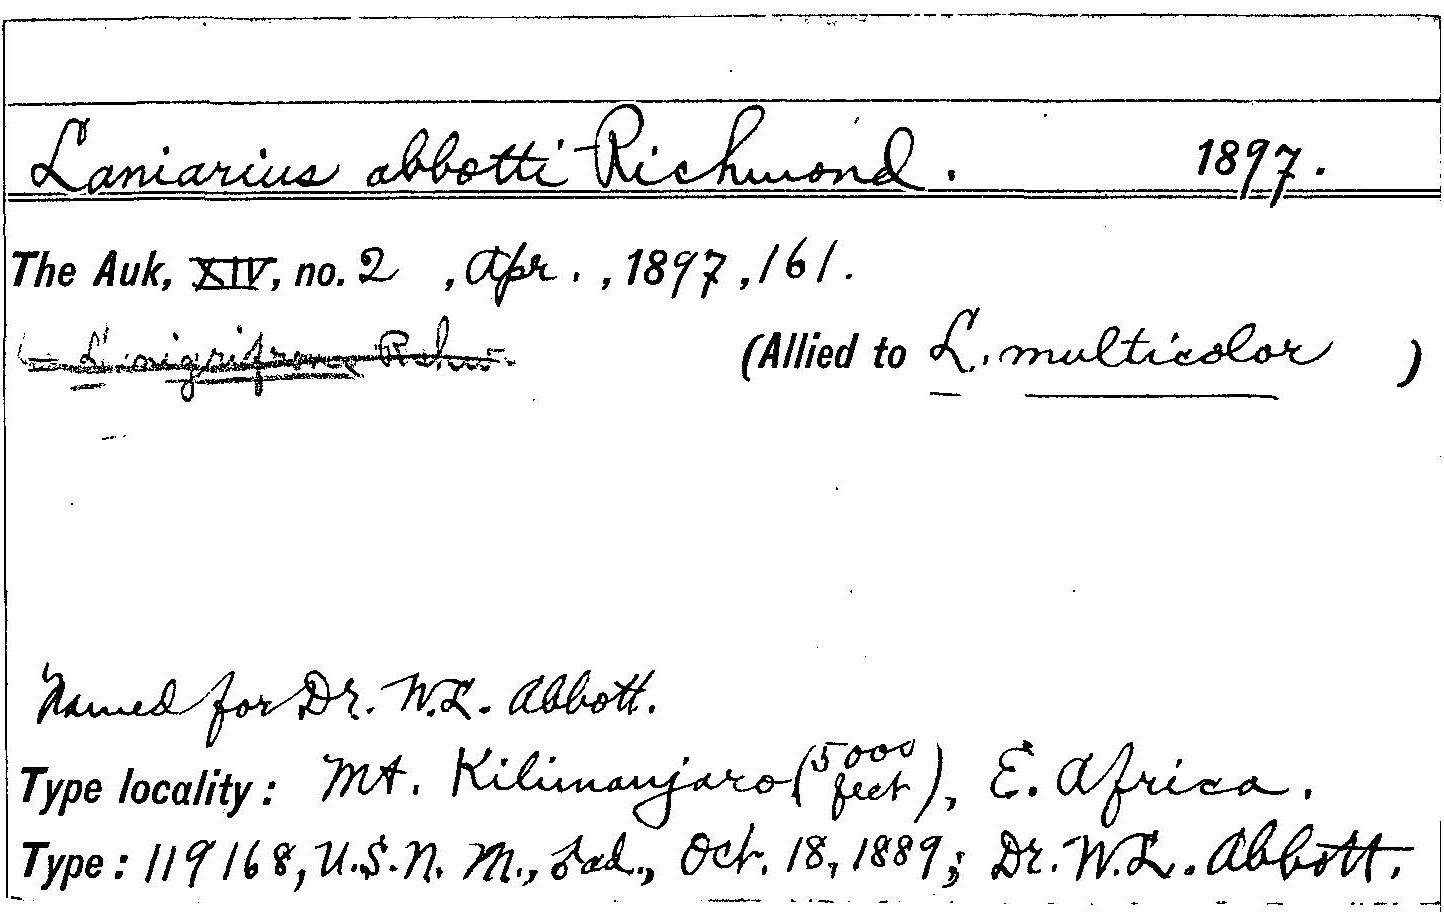 Laniarius abbotti Richmond. 1897.
The Auk, XIV, no. 2, Apr., 1897, 161.
= L. nigrifrons Rchw. (Allied to L. multicolor )
Named for Dr. W.L. Abbott.
Type locality: Mt. Kilimanjaro (5000 feet), E. Africa.
Type: 119168, U.S.N.M., ad., Oct. 18, 1889; Dr. W.L. Abbott.